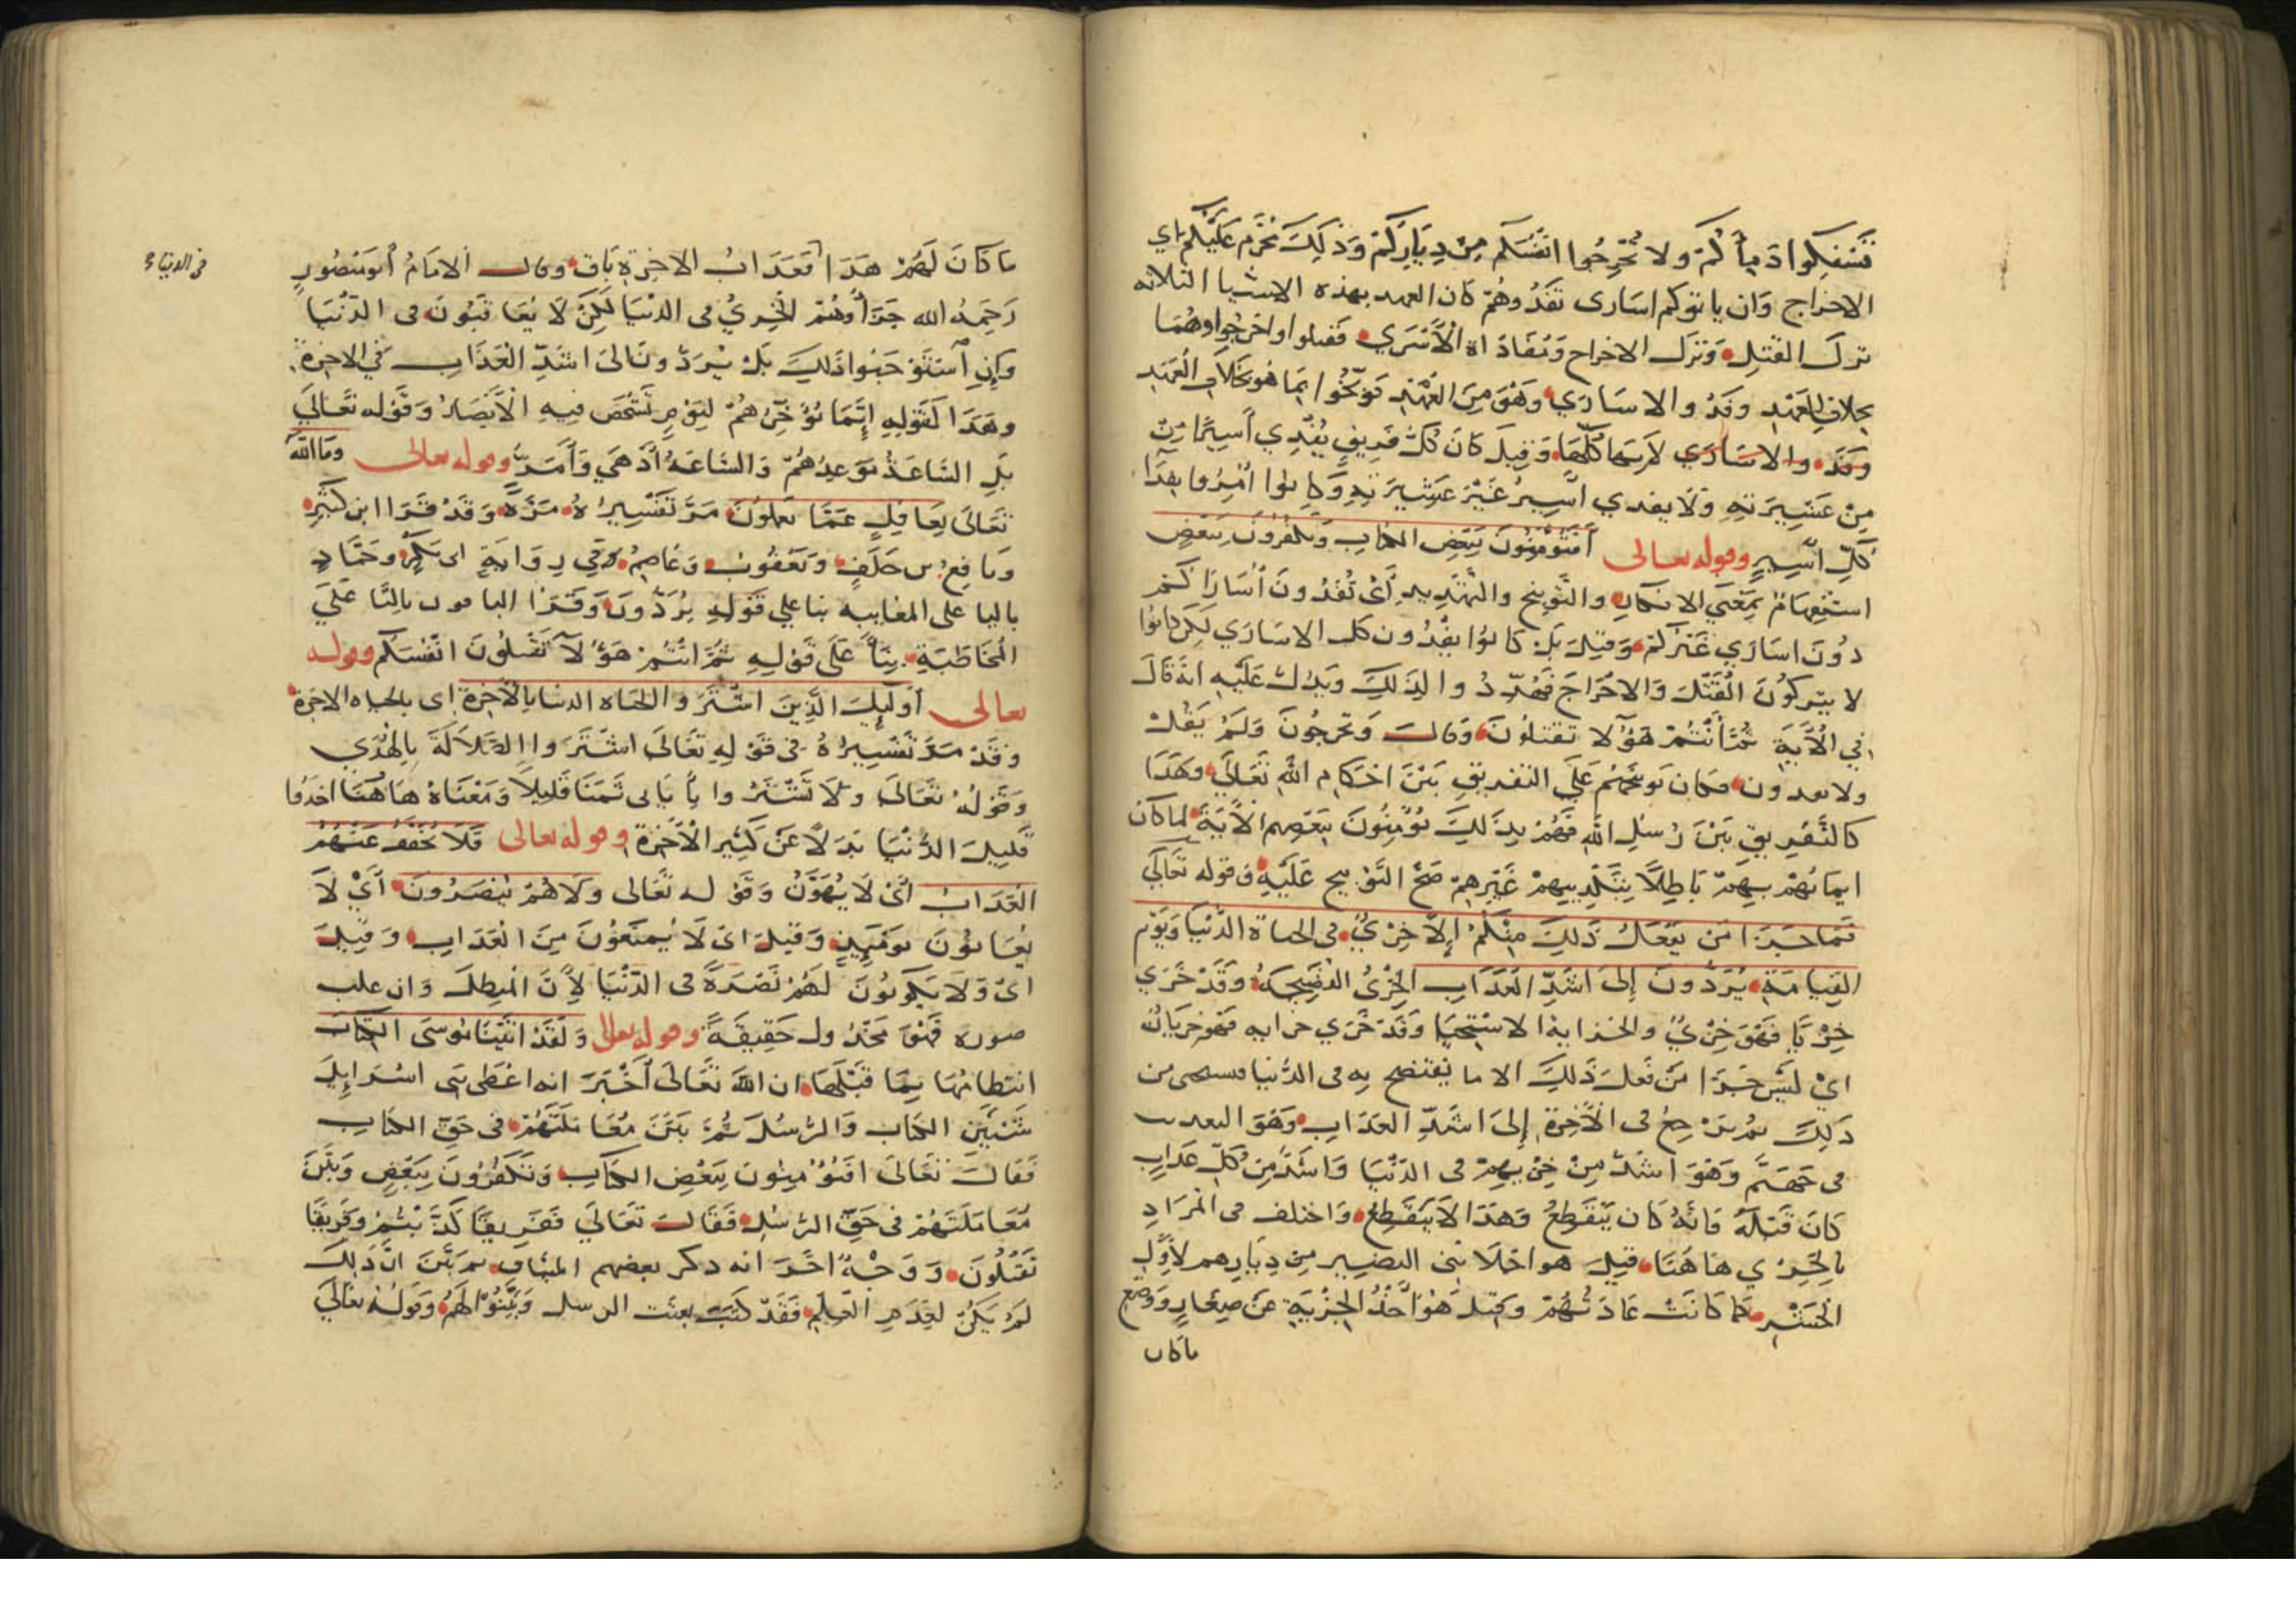 تسفكوا دمأكم ولا تخرجوا انفسكم من دياركم وذلك محرم عليكم اي
الاخراج وان ياتوكم اسارى تفدوهم كان العهد بهذه الاشيا الثلاثه
ترك القتل وترك الاخراج ومفاداة الأسري فقتلوا واخرجوا وهما
بخلاف العهد وفدوا الاساري وهو من العهد توبخوا بما هو بخلاف العهد
وفدوا الاساري لاسما كلها وقيل كان كل فريق يفدي أسيرا من
من عشيرته ولا يفدي اسير غير عشيرته وكانوا امروا بفدآ
كل اسير وقوله تعالى أفتؤمنون ببعض الكتاب وتكفرون ببعض
استفهام بمعنى الانكار والتوبيخ والتهديد أي تفدون أسارا كم
دون اساري غيركم وقيل بل كانوا يفدون كل الاساري لكن كانوا
لا يتركون القتل والاخراج فهددوا لذلك ويدل عليه انه قال
في الآية ثم أنتم هؤلا تقتلون وقال وتخرجون ولم يقل
ولا تفدون فكان توبيخهم على التفريق بين احكام الله تعالى وهذا
كالتفريق بين رسل الله فهم بذلك يؤمنون ببعضهم الآية لما كان
ايمانهم بهم باطلا بتكذيبهم غيرهم صح التوبيخ عليه ف قوله تعالى
فما جزا من يفعل ذلك منكم إلا خزي في الحياة الدنيا ويوم
القيامة يردون إلى اشد العذاب الخزي الفضيحة وقد خزي
خزيا فهو خزي والخزاية الاستحيا وقد خزي خزايه فهو خزيان
اي ليس جزا من فعل ذلك الا ما يفتضح به في الدنيا فيستحى من
ذلك ثم يرجع في الآخرة إلى اشد العذاب وهو التعذيب
في جهنم وهو اشد من خزيهم في الدنيا واشد من كل عذاب
كان قبله فانه كان ينقطع وهذا لا ينقطع واختلف في المراد
بالخزي هاهنا قيل هو اخلا بني النضير من ديارهم لأول
الحشر كما كانت عادتهم وقيل هو أخذ الجزية عن صغار ووضع
ماكان
ما كان لهم هذا فعذاب الاخرة باق وقال الامام أبو منصور
في الدنيا
رحمه الله جزاوهم الخزي في الدنيا لكن لا يعاقبون في الدنيا
وان استوجبوا ذلك بل يردون الى اشد العذاب في الاخرة
وهذا لقوله إنما نؤخرهم ليوم تشخص فيه الأبصار وقوله تعالي
بل الساعة موعدهم والساعة أدهي وأمر وقوله تعالى وما الله
تعالى بغافل عما تعملون مر تفسيره مرة وقد قرا ابن كثير
ونافع بن خلف ويعقوب وعاصم في رواية ابي بكر وحماد
باليا على المغايبه بنا علي قوله يردون وقرا الباقون بالتا علي
المخاطبة بنا على قوله ثم انتم هؤلا تقتلون انفسكم وقوله
تعالى أوليك الذين اشتروا الحياه الدنيا بالآخرة اي بالحياه الاخرة
وقد مر تفسيره في قوله تعالى اشتروا الضلالة بالهدي
وقوله تعالى ولا تشتروا بآياتي ثمنا قليلا ومعناه هاهنا اخذوا
قليل الدنيا بدلا عن كثير الآخرة وقوله تعالى فلا يخفف عنهم
العذاب أي لا يهون وقوله تعالى ولا هم ينصرون أي لا
يعانون يومئذ وقيل اي لا يمنعون من العذاب وقيل
اي ولا يكونون لهم نصرة في الدنيا لأن المبطل وان غلب
صورة فهو مخذول حقيقة وقوله تعالى ولقد اتينا موسى الكتاب
انتظامها بما قبلها ان الله تعالى أخبر انه اعطى بني اسرايل
شيئين الكتاب والرسل ثم بين معاملتهم في حق الكتاب
فقال تعالى افتؤمنون ببعض الكتاب وتكفرون ببعض وبين
معاملتهم في حق الرسل فقال تعالى ففريقا كذبتم وفريقا
تقتلون ووجه اخر انه ذكر بعضهم الميثاق ثم بين ان ذلك
لم يكن لعدم العلم فقد كتب بعثت الرسل وبينوا لهم وقوله تعالي